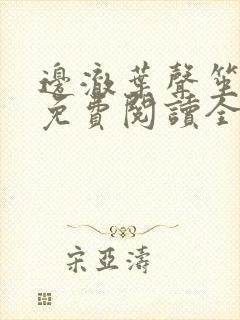 邊澈葉聲笙
免費閱讀全
宋亞濤